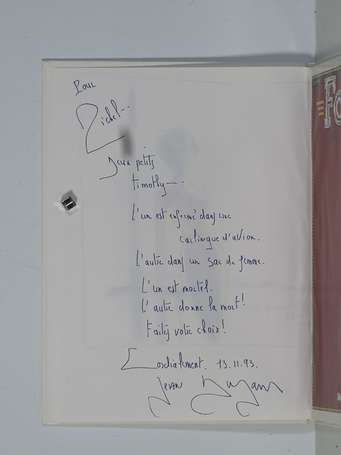 Pour
Michel...
Deux petits
timothy...
L'un est enfermé dans une
carlingue d'avion.
L'autre dans un sac de femme.
L'un est mortel.
L'autre donne la mort!
Faites votre choix!
Cordialement. 13.11.93.
Fo